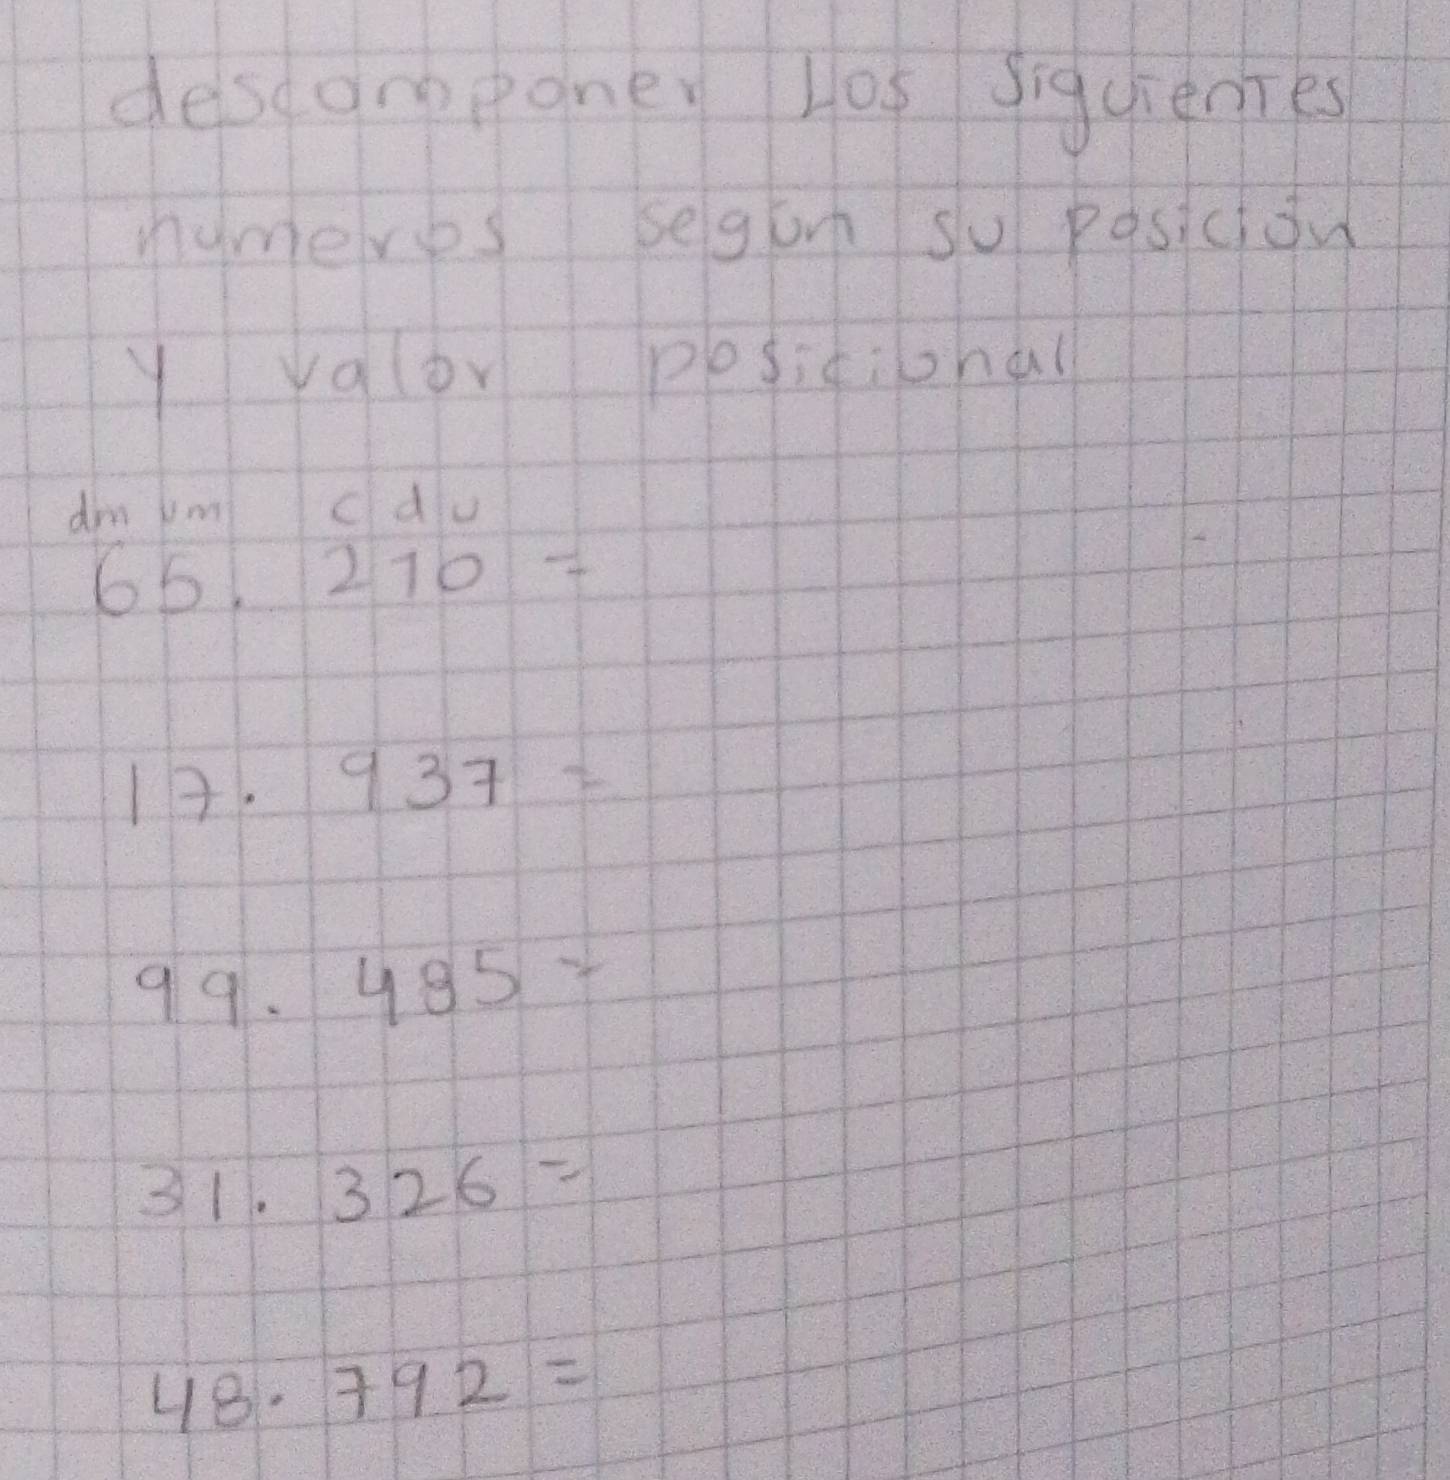 descomponer Los siguientes
numeros según su posición
y valor posicional
dm um c d u
65. 210 =
17. 937 =
99. 485 =
31. 326 =
48. 792 =